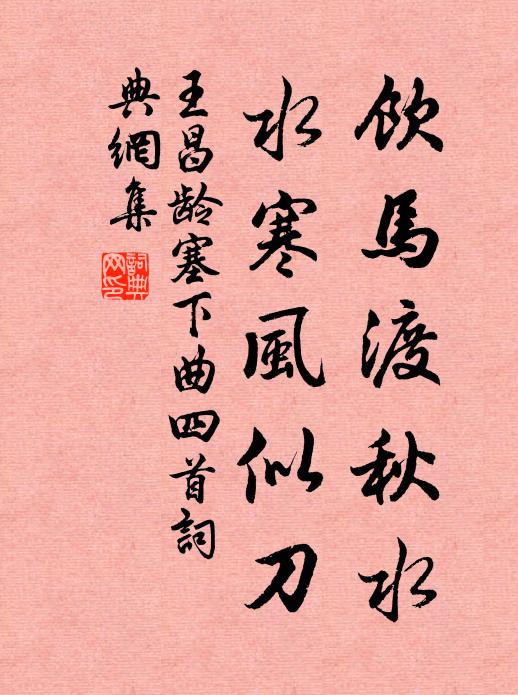 飲馬渡秋水
水寒風似刀
王昌龄塞下曲四首詞
典網集
詞典網印